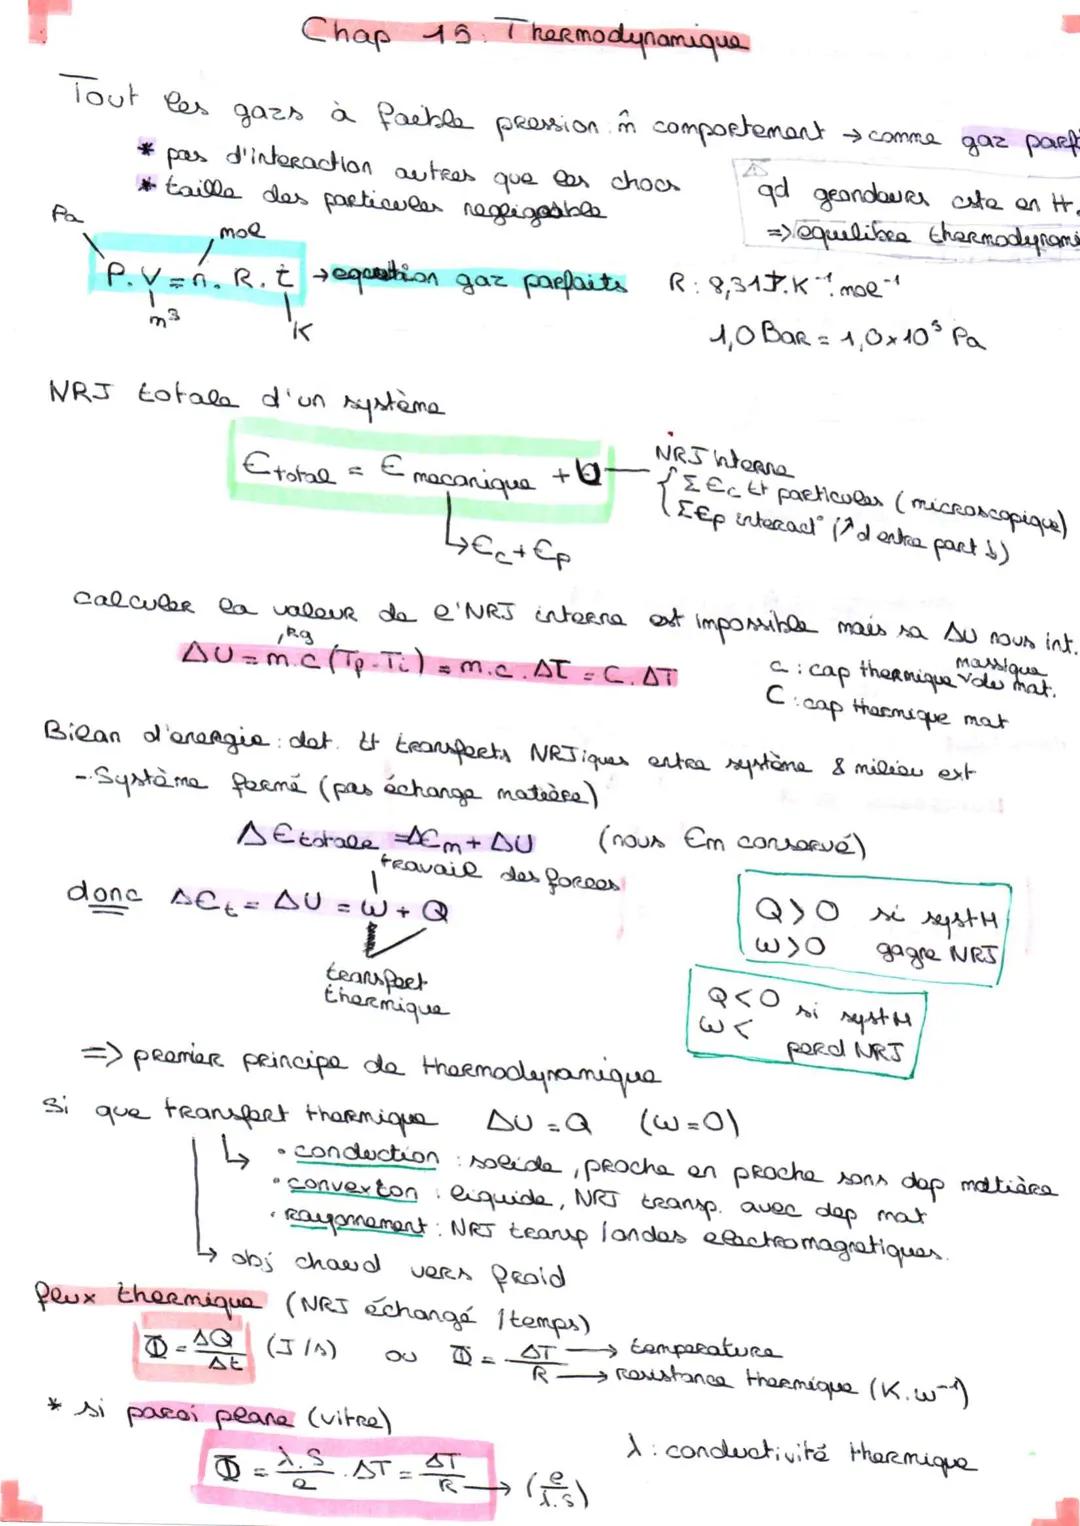 Chap 15: Thermodynamique
Tout les gazs à faible pression m̂ comportement → comme gaz parf
* pas d'interaction autres que les chocs
* taille des particules negligeable
⚠ qd grandeurs cste en tt.
=> equilibre thermodynami
Pa
mol
P.V = n.R.t → equation gaz parfaits
m³
K
R : 8,31 J.K⁻¹.mol⁻¹
1,0 Bar = 1,0×10⁵ Pa
NRJ totale d'un système
Etotal = Emecanique + U
NRJ interne
Σ Ec tt particules (microscopique)
ΣEp interact° (↗ d entre part ↓)
↳ Ec + Ep
calculer la valeur de l'NRJ interne est impossible mais sa ΔU nous int.
kg
ΔU = m.c (Tf - Ti) = m.c.ΔT = C.ΔT
c : cap thermique massique du mat.
C : cap thermique mat
Bilan d'energie : det. tt transferts NRJiques entre système & milieu ext
- Système fermé (pas échange matière)
ΔEtotale = ΔEm + ΔU (nous Em conservé)
travail des forces
donc ΔEt = ΔU = W + Q
transfert
thermique
Q>0 si systM
W>0 gagne NRJ
Q<0 si systM
W< perd NRJ
=> premier principe de thermodynamique
Si que transfert thermique ΔU = Q (W=0)
↳ • conduction : solide, proche en proche sans dep matière
• convexton : liquide, NRJ transp. avec dep mat
• Rayonnement : NRJ transp / ondes electromagnetiques.
↳ obj chaud vers froid
flux thermique (NRJ échangé / temps)
Φ = ΔQ/Δt (J/s) ou Φ = ΔT/R
→ temperature
→ resistance thermique (K.W⁻¹)
* si paroi plane (vitre)
Φ = λ.S/e . ΔT = ΔT/R → (e/λ.S)
λ : conductivité thermique